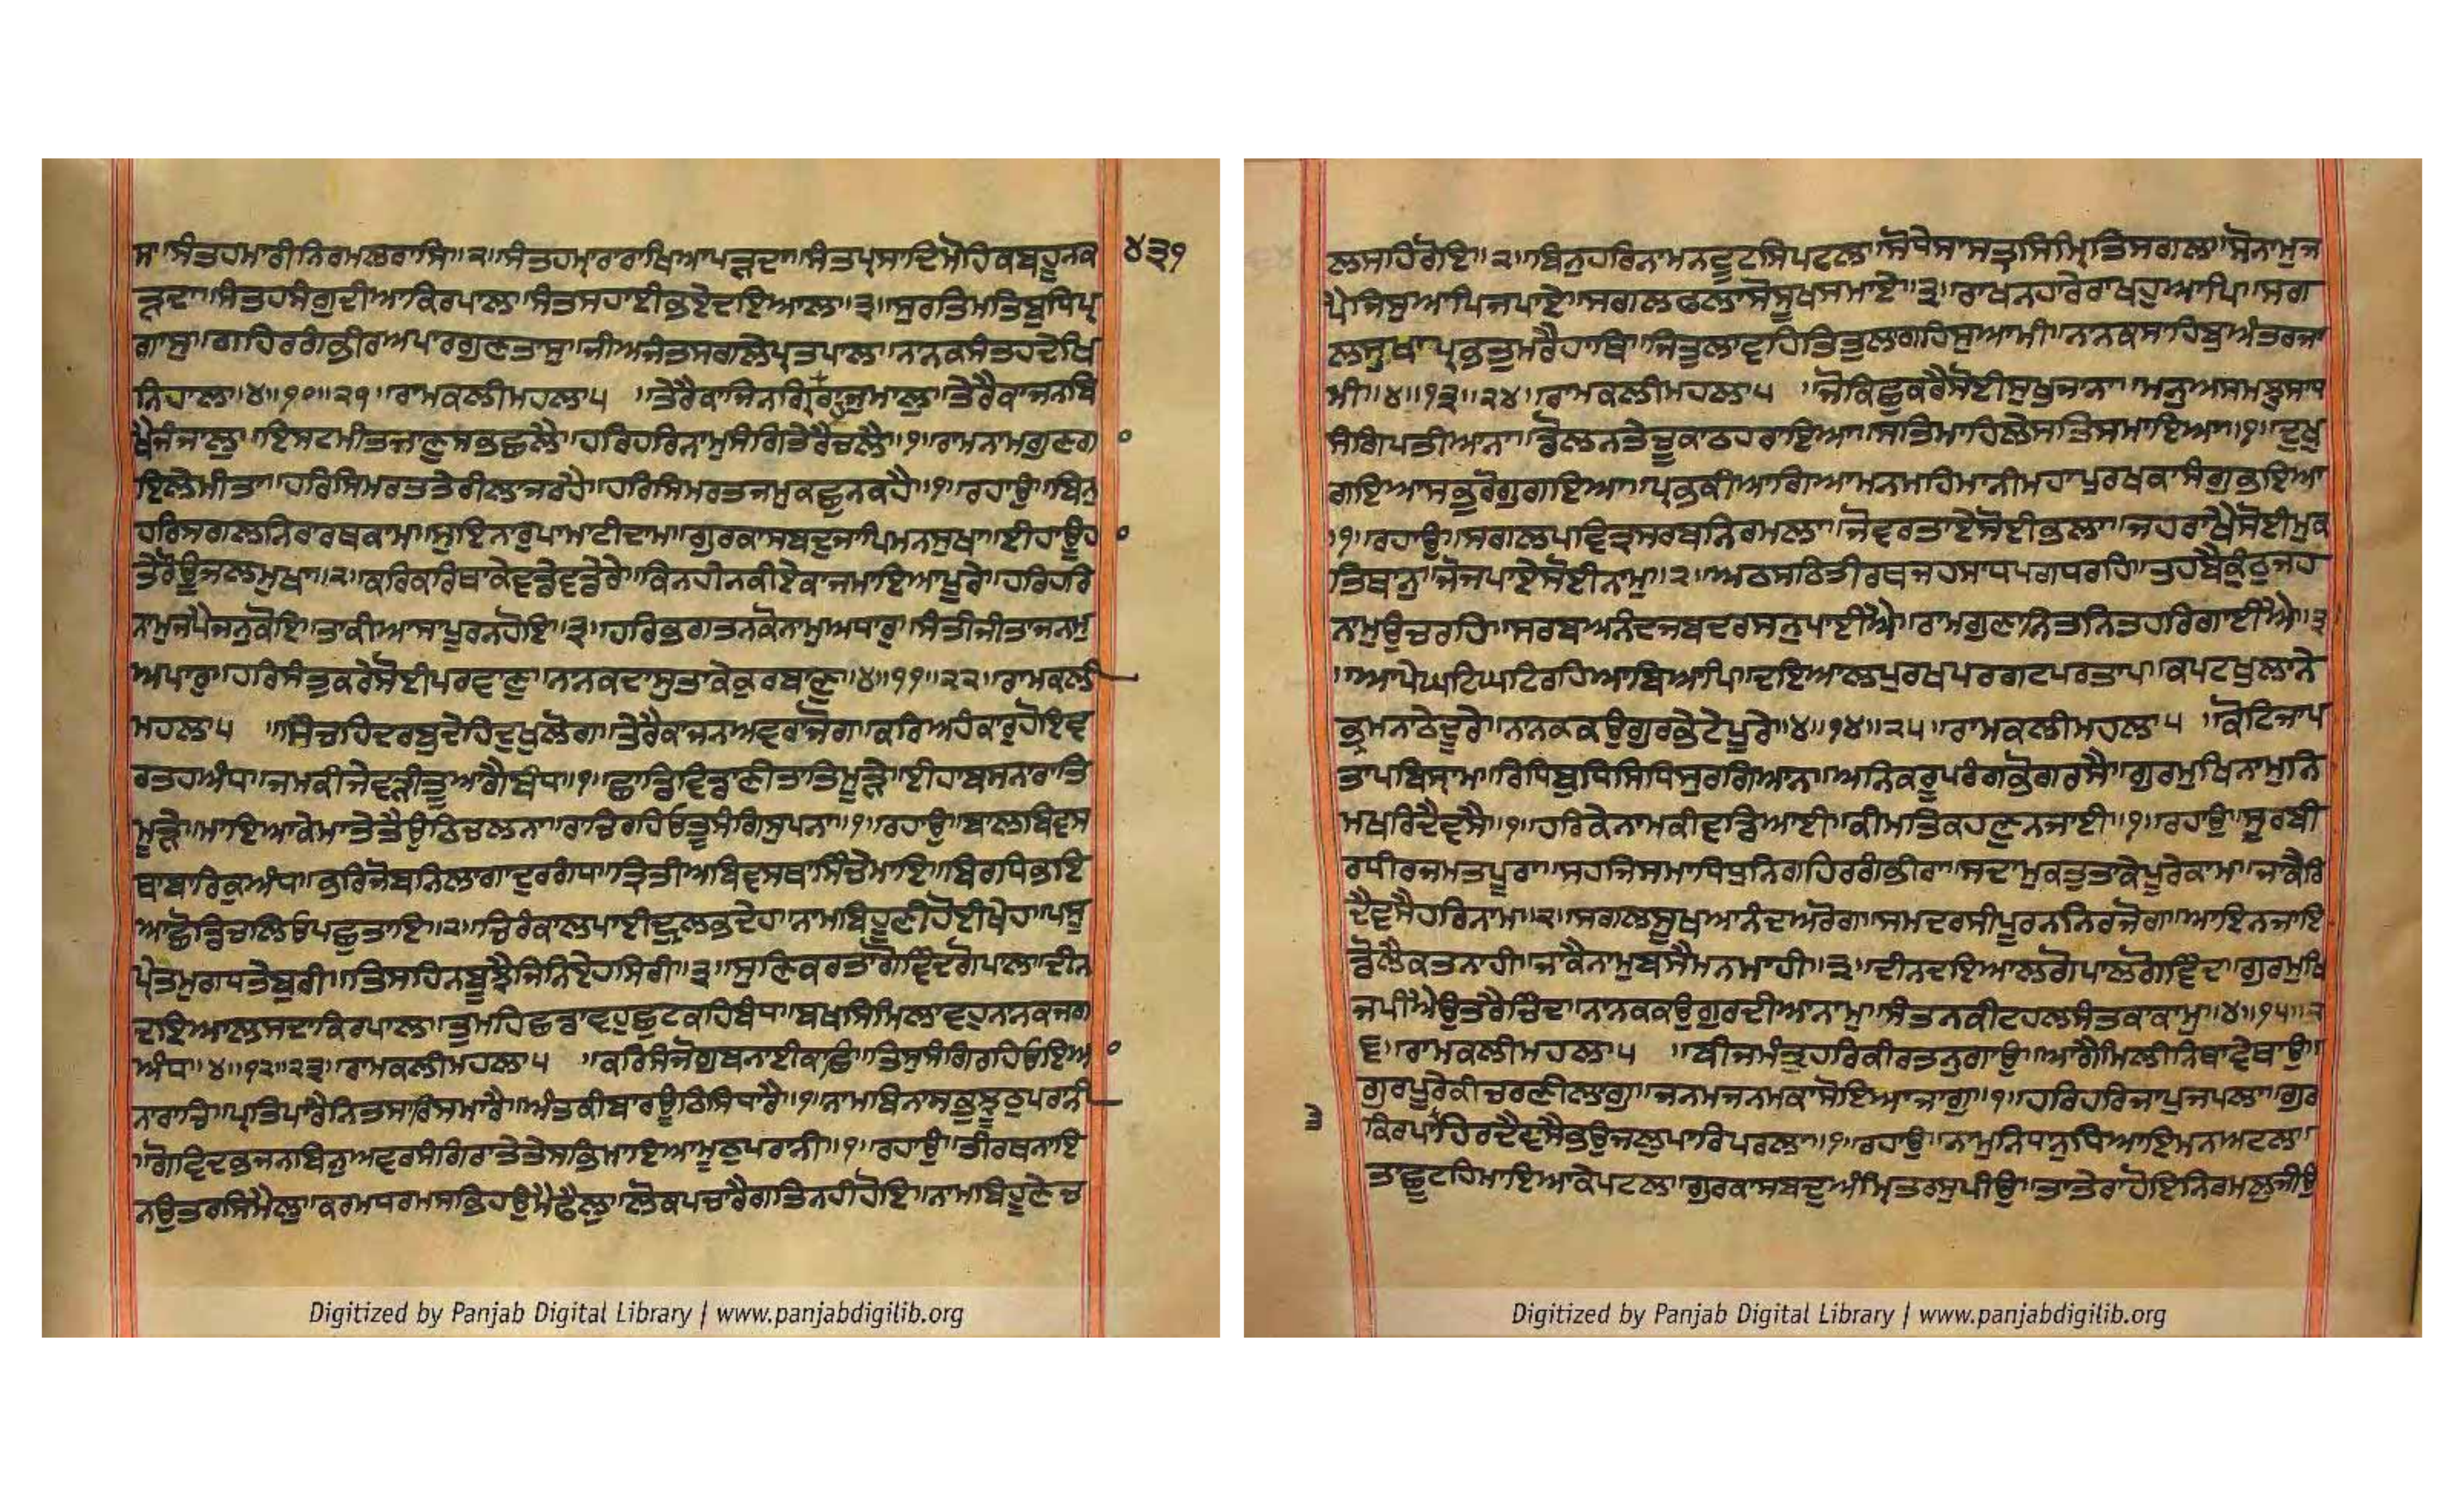 ਸ॥ਸੰਤਹਮਾਰੀਨਿਰਮਲਰਾਸਿ॥੨॥ਸੰਤਹਮਾਰਾਰਾਖਿਆਪੜਦਾ॥ਸੰਤਪ੍ਰਸਾਦਿਮੋਹਿਕਬਹੂਨਕ ੪੩੧
ੜਦਾ॥ਸੰਤਹਸੰਗੁਦੀਆਕਿਰਪਾਲਾ॥ਸੰਤਸਹਾਈਭਏਦਇਆਲਾ॥੩॥ਸੁਰਤਿਮਤਿਬੁਧਿਪ੍ਰ
ਗਾਸੁ॥ਗਹਿਰਗੰਭੀਰਅਪਾਰਗੁਣਤਾਸੁ॥ਜੀਅਜੰਤਸਗਲੇਪ੍ਰਤਪਾਲਾ॥ਨਾਨਕਸੰਤਹਦੇਖਿ
ਨਿਹਾਲਾ॥੪॥੧੦॥੨੧॥ਰਾਮਕਲੀਮਹਲਾ੫ ॥ਤੇਰੈਕਾਜਿਨਗ੍ਰਿਹੁਰਾਜੁਮਾਲੁ॥ਤੇਰੈਕਾਜਨਬਿ
ਖੈਜੰਜਾਲੁ॥ਇਸਟਮੀਤਜਾਣੁਸਭਛਲੈ॥ਹਰਿਹਰਿਨਾਮੁਸੰਗਿਤੇਰੈਚਲੈ॥੧॥ਰਾਮਨਾਮਗੁਣਗਾ
ਇਲੇਮੀਤਾ॥ਹਰਿਸਿਮਰਤਤੇਰੀਲਾਜਰਹੈ॥ਹਰਿਸਿਮਰਤਜਮੁਕਛੁਨਕਹੈ॥੧॥ਰਹਾਉ॥ਬਿਨੁ
ਹਰਿਸਗਲਨਿਰਾਰਥਕਾਮਾ॥ਸੁਇਨਾਰੁਪਾਮਾਟੀਦਾਮਾ॥ਗੁਰਕਾਸਬਦੁਜਾਪਿਮਨਸੁਖਾ॥ਈਹਾਊਹਾ
ਤੇਰੋਊਜਲਮੁਖਾ॥੨॥ਕਰਿਕਰਿਥਾਕੇਵਡੇਵਡੇਰੇ॥ਕਿਨਹੀਨਕੀਏਕਾਜਮਾਇਆਪੂਰੇ॥ਹਰਿਹਰਿ
ਨਾਮੁਜਪੈਜਨੁਕੋਇ॥ਤਾਕੀਆਸਾਪੂਰਨਹੋਇ॥੩॥ਹਰਿਭਗਤਨਕੋਨਾਮੁਅਧਾਰੁ॥ਸੰਤੀਜੀਤਾਜਨਮੁ
ਅਪਾਰੁ॥ਹਰਿਸੰਤੁਕਰੇਸੋਈਪਰਵਾਣੁ॥ਨਾਨਕਦਾਸੁਤਾਕੇਕੁਰਬਾਣੁ॥੪॥੧੧॥੨੨॥ਰਾਮਕਲੀ
ਮਹਲਾ੫ ॥ਸਿੰਚਹਿਦਰਬੁਦੇਹਿਦੁਖੁਲੋਗ॥ਤੇਰੈਕਾਜਨਅਵਰਾਜੋਗ॥ਕਰਿਅਹੰਕਾਰੁਹੋਇਵ
ਰਤਹਅੰਧ॥ਜਮਕੀਜੇਵੜੀਤੂਆਗੈਬੰਧ॥੧॥ਛਾਡਿਵਿਡਾਣੀਤਾਤਿਮੂੜੇ॥ਈਹਾਬਸਨਾਰਾਤਿ
ਮੂੜੇ॥ਮਾਇਆਕੇਮਾਤੇਤੈਉਠਿਚਲਨਾ॥ਰਾਚਿਰਹਿਓਤੂਸੰਗਿਸੁਪਨਾ॥੧॥ਰਹਾਉ॥ਬਾਲਬਿਵਸ
ਥਾਬਾਰਿਕੁਅੰਧ॥ਭਰਿਜੋਬਨਿਲਾਗਾਦੁਰਗੰਧ॥ਤ੍ਰਿਤੀਅਬਿਵਸਥਾਸਿੰਚੇਮਾਇ॥ਬਿਰਧਿਭਇ
ਆਛੋਡਿਚਲਿਓਪਛੁਤਾਇ॥੨॥ਚਿਰੰਕਾਲਪਾਈਦ੍ਰੁਲਭਦੇਹ॥ਨਾਮਬਿਹੂਣੀਹੋਈਖੇਹ॥ਪਸੁ
ਪ੍ਰੇਤਮੁਗਧਤੇਬੁਰੀ॥ਤਿਸਹਿਨਬੂਝੈਜਿਨਿਏਹਸਿਰੀ॥੩॥ਸੁਣਿਕਰਤਾਰਗੋਵਿੰਦਗੋਪਾਲ॥ਦੀਨ
ਦਇਆਲਸਦਾਕਿਰਪਾਲ॥ਤੁਮਹਿਛਡਾਵਹੁਛੁਟਕਹਿਬੰਧ॥ਬਖਸਿਮਿਲਾਵਹੁਨਾਨਕਜਗ
ਅੰਧ॥੪॥੧੨॥੨੩॥ਰਾਮਕਲੀਮਹਲਾ੫ ॥ਕਰਿਸੰਜੋਗੁਬਨਾਈਕਾਛਿ॥ਤਿਸੁਸੰਗਿਰਹਿਓਇਆ
ਨਾਰਾਚਿ॥ਪ੍ਰਤਿਪਾਰੈਨਿਤਸਾਰਿਸਮਾਰੈ॥ਅੰਤਕੀਬਾਰਊਠਿਸਿਧਾਰੈ॥੧॥ਨਾਮਬਿਨਾਸਭੁਝੂਠੁਪਰਾਨੀ
॥ਗੋਵਿਦਭਜਨਬਿਨੁਅਵਰਸੰਗਿਰਾਤੇਤੇਸਭਿਮਾਇਆਮੂਠੁਪਰਾਨੀ॥੧॥ਰਹਾਉ॥ਤੀਰਥਨਾਇ
ਨਉਤਰਸਿਮੈਲੁ॥ਕਰਮਧਰਮਸਭਿਹਉਮੈਫੈਲੁ॥ਲੋਕਪਚਾਰੈਗਤਿਨਹੀਹੋਇ॥ਨਾਮਬਿਹੂਣੇਚ
ਲਸਹਿਰੋਇ॥੨॥ਬਿਨੁਹਰਿਨਾਮਨਟੂਟਸਿਪਟਲ॥ਸੋਧੇਸਾਸਤ੍ਰਸਿਮ੍ਰਿਤਿਸਗਲ॥ਸੋਨਾਮੁਜ
ਪੈਜਿਸੁਆਪਿਜਪਾਏ॥ਸਗਲਫਲਾਸੇਸੂਖਸਮਾਏ॥੩॥ਰਾਖਨਹਾਰੇਰਾਖਹੁਆਪਿ॥ਸਗ
ਲਸੁਖਾਪ੍ਰਭਤੁਮਰੈਹਾਥਿ॥ਜਿਤੁਲਾਵਹਿਤਿਤੁਲਾਗਹਿਸੁਆਮੀ॥ਨਾਨਕਸਾਹਿਬੁਅੰਤਰਜਾ
ਮੀ॥੪॥੧੩॥੨੪॥ਰਾਮਕਲੀਮਹਲਾ੫ ॥ਜੋਕਿਛੁਕਰੈਸੋਈਸੁਖੁਜਾਨਾ॥ਮਨੁਅਸਮਝੁਸਾਧ
ਸੰਗਿਪਤੀਆਨਾ॥ਡੋਲਨਤੇਚੂਕਾਠਹਰਾਇਆ॥ਸਤਿਮਾਹਿਲੇਸਤਿਸਮਾਇਆ॥੧॥ਦੂਖੁ
ਗਇਆਸਭੁਰੋਗੁਗਇਆ॥ਪ੍ਰਭਕੀਆਗਿਆਮਨਮਹਿਮਾਨੀਮਹਾਪੁਰਖਕਾਸੰਗੁਭਇਆ
॥੧॥ਰਹਾਉ॥ਸਗਲਪਵਿਤ੍ਰਸਰਬਨਿਰਮਲਾ॥ਜੋਵਰਤਾਏਸੋਈਭਲਾ॥ਜਹਰਾਖੈਸੋਈਮੁਕ
ਤਿਥਾਨੁ॥ਜੋਜਪਾਏਸੋਈਨਾਮੁ॥੨॥ਅਠਸਠਿਤੀਰਥਜਹਸਾਧਪਗਧਰਹਿ॥ਤਹਬੈਕੁੰਠੁਜਹ
ਨਾਮੁਉਚਰਹਿ॥ਸਰਬਅਨੰਦਜਬਦਰਸਨੁਪਾਈਐ॥ਰਾਮਗੁਣਾਨਿਤਨਿਤਹਰਿਗਾਈਐ॥੩
॥ਆਪੇਘਟਿਘਟਿਰਹਿਆਬਿਆਪਿ॥ਦਇਆਲਪੁਰਖਪਰਗਟਪਰਤਾਪ॥ਕਪਟਖੁਲਾਨੇ
ਭ੍ਰਮਨਾਠੇਦੂਰੇ॥ਨਾਨਕਕਉਗੁਰਭੇਟੇਪੂਰੇ॥੪॥੧੪॥੨੫॥ਰਾਮਕਲੀਮਹਲਾ੫ ॥ਕੋਟਿਜਾਪ
ਤਾਪਬਿਸ੍ਰਾਮ॥ਰਿਧਿਬੁਧਿਸਿਧਿਸੁਰਗਿਆਨ॥ਅਨਿਕਰੂਪਰੰਗਭੋਗਰਸੈ॥ਗੁਰਮੁਖਿਨਾਮੁਨਿ
ਮਖਰਿਦੈਵਸੈ॥੧॥ਹਰਿਕੇਨਾਮਕੀਵਡਿਆਈ॥ਕੀਮਤਿਕਹਣੁਨਜਾਈ॥੧॥ਰਹਾਉ॥ਸੂਰਬੀ
ਰਧੀਰਜਮਤਪੂਰਾ॥ਸਹਜਿਸਮਾਧਿਧੁਨਿਗਹਿਰਗੰਭੀਰਾ॥ਸਦਾਮੁਕਤੁਤਾਕੇਪੂਰੇਕਾਮ॥ਜਾਕੈਰਿ
ਦੈਵਸੈਹਰਿਨਾਮ॥੨॥ਸਗਲਸੂਖਆਨੰਦਅਰੋਗ॥ਸਮਦਰਸੀਪੂਰਨਨਿਰਜੋਗ॥ਆਇਨਜਾਇ
ਡੋਲੈਕਤਨਾਹੀ॥ਜਾਕੈਨਾਮੁਬਸੈਮਨਮਾਹੀ॥੩॥ਦੀਨਦਇਆਲਗੋਪਾਲਗੋਵਿੰਦ॥ਗੁਰਮੁਖਿ
ਜਪੀਐਉਤਰੈਚਿੰਦ॥ਨਾਨਕਕਉਗੁਰਦੀਆਨਾਮੁ॥ਸੰਤਨਕੀਟਹਲਸੰਤਕਾਕਾਮੁ॥੪॥੧੫॥੨
੬॥ਰਾਮਕਲੀਮਹਲਾ੫ ॥ਬੀਜਮੰਤ੍ਰੁਹਰਿਕੀਰਤਨੁਗਾਉ॥ਆਗੈਮਿਲੀਨਿਥਾਵੇਥਾਉ॥
ਗੁਰਪੂਰੇਕੀਚਰਣੀਲਾਗੁ॥ਜਨਮਜਨਮਕਾਸੋਇਆਜਾਗੁ॥੧॥ਹਰਿਹਰਿਜਾਪੁਜਪਲਾ॥ਗੁਰ
ਕਿਰਪਾਹਿਰਦੈਵਸੈਭਉਜਲੁਪਾਰਿਪਰਲਾ॥੧॥ਰਹਾਉ॥ਨਾਮੁਨਿਧਾਨੁਧਿਆਇਮਨਅਟਲ॥
ਤਾਛੂਟਹਿਮਾਇਆਕੇਪਟਲ॥ਗੁਰਕਾਸਬਦੁਅੰਮ੍ਰਿਤਰਸੁਪੀਉ॥ਤਾਤੇਰਾਹੋਇਨਿਰਮਲੁਜੀਉ
Digitized by Panjab Digital Library | www.panjabdigilib.org
Digitized by Panjab Digital Library | www.panjabdigilib.org